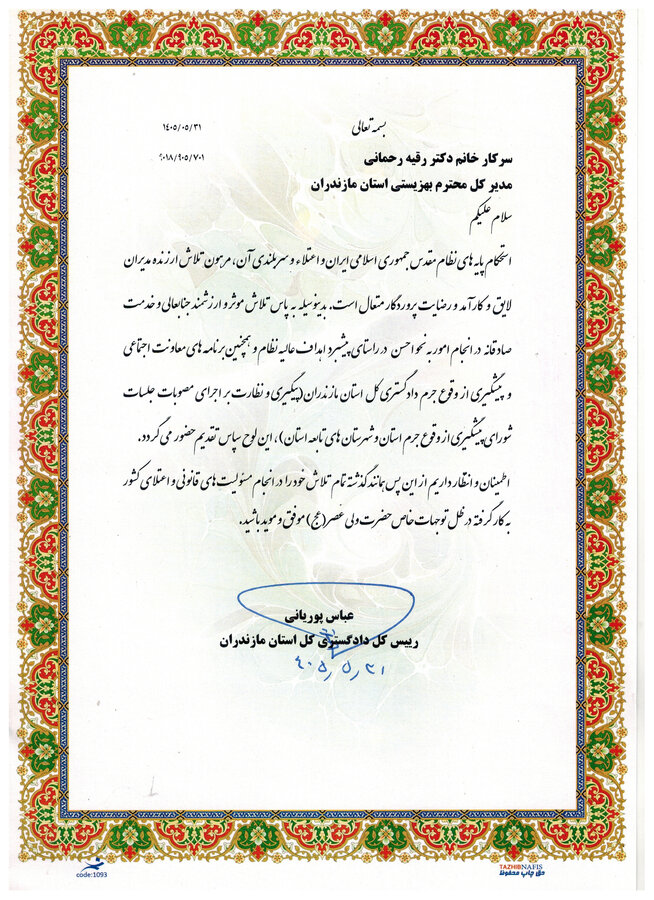 بسمه تعالی
۱۴۰۵/۰۵/۳۱
سرکار خانم دکتر رقیه رحمانی
۹۰۱۸/۹۰۵/۷۰۱
مدیر کل محترم بهزیستی استان مازندران
سلام علیکم
استحکام پایه های نظام مقدس جمهوری اسلامی ایران و اعتلاء و سربلندی آن، مرهون تلاش ارزنده مدیران
لایق و کارآمد و رضایت پروردگار متعال است. بدینوسیله به پاس تلاش موثر و ارزشمند جنابعالی و خدمت
صادقانه در انجام امور به نحو احسن در راستای پیشبرد اهداف عالیه نظام و همچنین برنامه های معاونت اجتماعی
و پیشگیری از وقوع جرم دادگستری کل استان مازندران(پیگیری و نظارت بر اجرای مصوبات جلسات
شورای پیشگیری از وقوع جرم استان و شهرستان های تابعه استان)، این لوح سپاس تقدیم حضور می گردد.
اطمینان و انتظار داریم از این پس همانند گذشته تمام تلاش خود را در انجام مسئولیت های قانونی و اعتلای کشور
به کار گرفته در ظل توجهات خاص حضرت ولی عصر(عج) موفق و موید باشید.
عباس پوریانی
رییس کل دادگستری کل استان مازندران
۴۰۵/۵/۳۱
code:1093
TAZHIBNAFIS
حق چاپ محفوظ